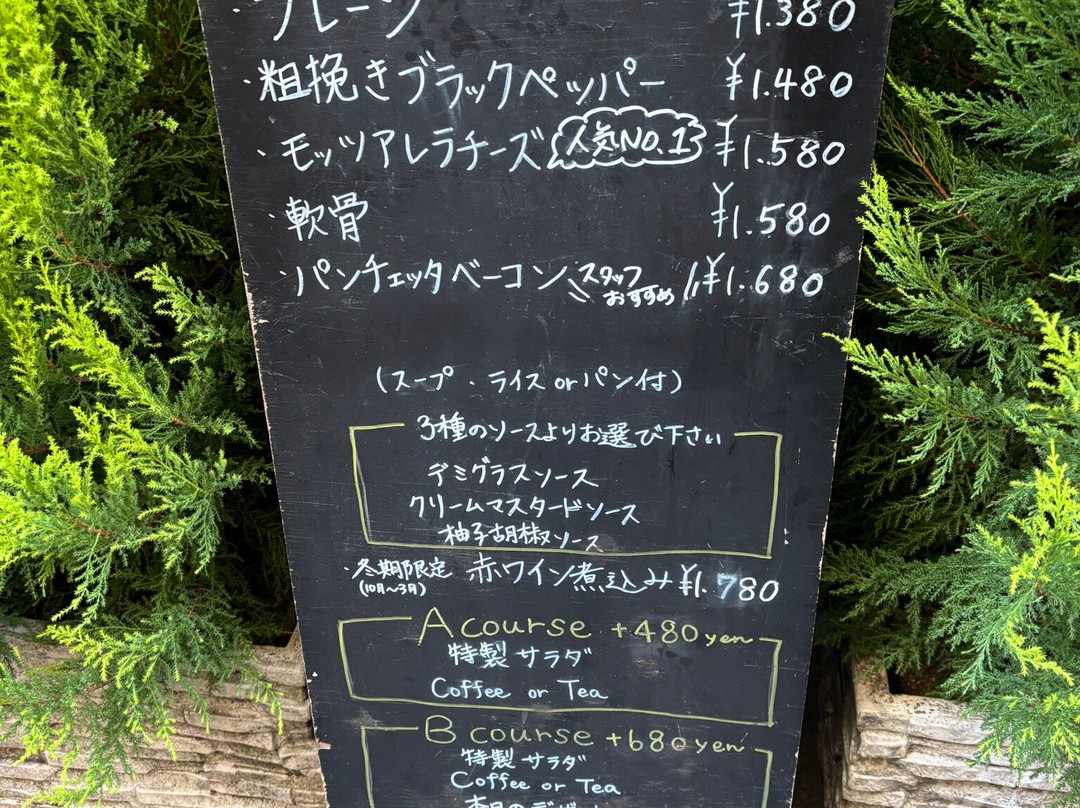 ・プレーン ¥1.380
・粗挽きブラックペッパー ¥1.480
・モッツアレラチーズ 人気NO.1 ¥1.580
・軟骨 ¥1.580
・パンチェッタベーコン スタッフおすすめ ¥1.680
(スープ・ライスorパン付)
3種のソースよりお選び下さい
デミグラスソース
クリームマスタードソース
柚子胡椒ソース
・冬期限定 (10月〜3月) 赤ワイン煮込み ¥1.780
A course +480yen
特製サラダ
Coffee or Tea
B course +680yen
特製サラダ
Coffee or Tea
本日のデザート